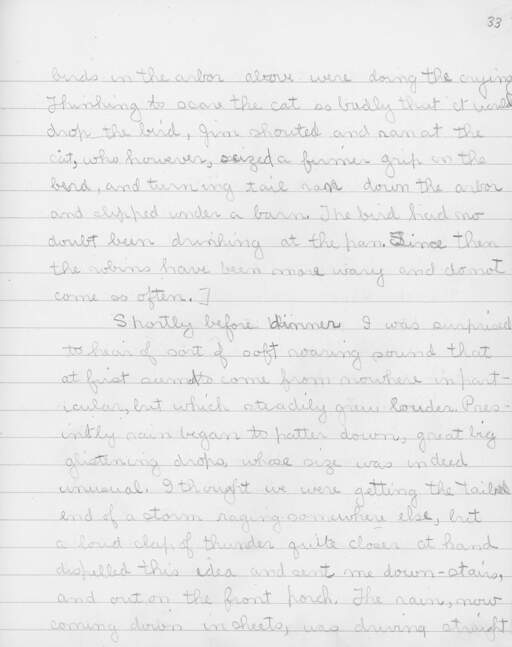 33
birds in the arbor above were doing the crying
Thinking to scare the cat so badly that it would
drop the bird, Jim shouted and ran at the
cat, who however, seized a firmer grip on the
bird, and turning tail ran down the arbor
and slipped under a barn. The bird had no
doubt been drinking at the pan. Since then
the robins have been more wary and do not
come so often.]
Shortly before dinner I was surprised
to hear of sort of soft roaring sound that
at first seemed to come from nowhere in part-
icular, but which steadily grew louder. Pres-
ently rain began to patter down, great big
glistening drops, whose size was indeed
unusual. I thought we were getting the tail
end of a storm raging somewhere else, but
a loud clap of thunder quite closer at hand
dispelled this idea and sent me down-stairs,
and out on the front porch. The rain, now
coming down in sheets, was driving straight